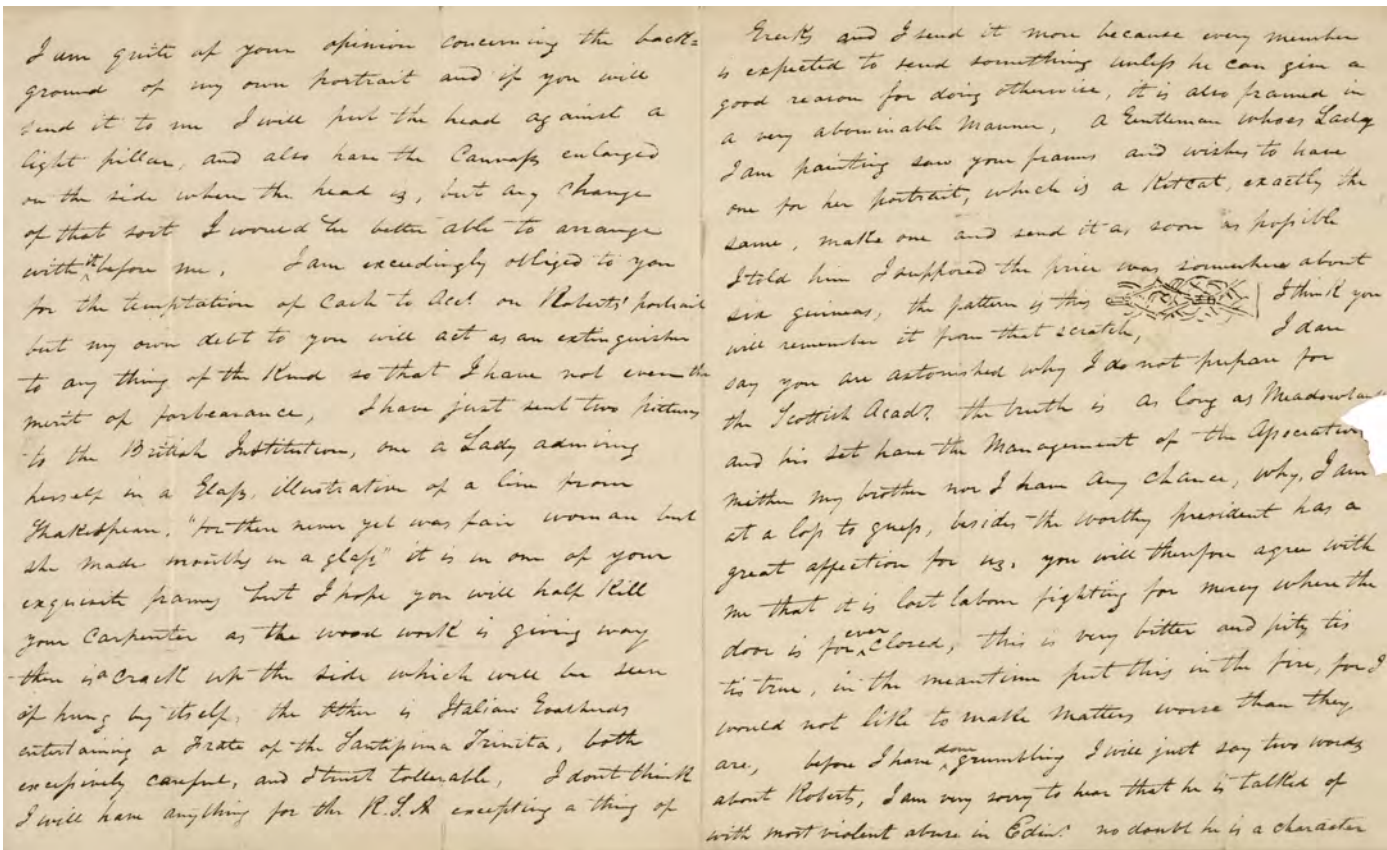 I am quite of your opinion concerning the back=
ground of my own portrait and if you will
send it to me I will put the head against a
light pillar, and also have the Canvass enlarged
on the side where the head is, but any change
of that sort I would be better able to arrange
with it before me, I am exceedingly obliged to you
for the temptation of Cash to Acct. on Roberts' portrait
but my own debt to you will act as an extinguisher
to any thing of the Kind so that I have not even the
merit of forbearance, I have just sent two pictures
to the British Institution, one a Lady admiring
herself in a Glass, illustrative of a line from
Shakespear, "for there never yet was fair woman but
she made mouths in a glass" it is in one of your
exquisite frames but I hope you will half Kill
your Carpenter as the wood work is giving way
there is a crack up the side which will be seen
if hung by itself, the other is Italian Goatherds
entertaining a Frate of the Santissima Trinita, both
excessively careful, and I trust tollerable, I dont think
I will have anything for the R.S.A excepting a thing of
Greeks and I send it more because every member
is expected to send something unless he can give a
good reason for doing otherwise, it is also framed in
a very abominable Manner, A Gentleman whose Lady
I am painting saw your frames and wishes to have
one for her portrait, which is a Kitcat, exactly the
same, make one and send it as soon as possible
I told him I supposed the price was somewhere about
six guineas, the pattern is this I think you
will remember it from that scratch, I dare
say you are astonished why I do not prepare for
the Scottish Acady. the truth is as long as
and his set have the Management of the Association
neither my brother nor I have any chance, why, I am
at a loss to guess, besides the worthy president has a
great affection for us, you will therefore agree with
me that it is lost labour fighting for mercy where the
door is for ever closed, this is very bitter and pity tis
tis true, in the meantime put this in the fire, for I
would not like to make Matters worse than they
are, before I have done grumbling I will just say two words
about Roberts, I am very sorry to hear that he is talked of
with most violent abuse in Edinr. no doubt he is a character